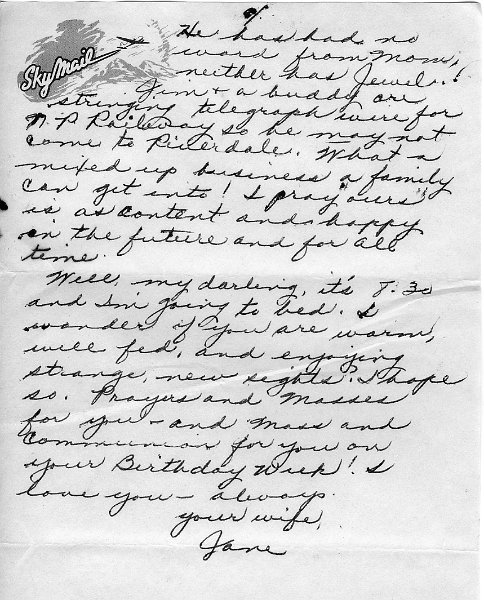 Sky Mail
He has had no
word from Mom,
neither has Jewel.!
Jim + a buddy are
stringing telegraph wire for
N.P. Railway so he may not
come to Riverdale. What a
mixed up business a family
can get into! I pray ours
is as content and happy
in the future and for all
time.
Well, my darling, it's 8:30
and I'm going to bed. I
wonder if you are warm,
well fed, and enjoying
strange, new sights. I hope
so. Prayers and Masses
for you - and Mass and
Communion for you on
your Birthday Week! I
love you - always.
your wife,
Jane